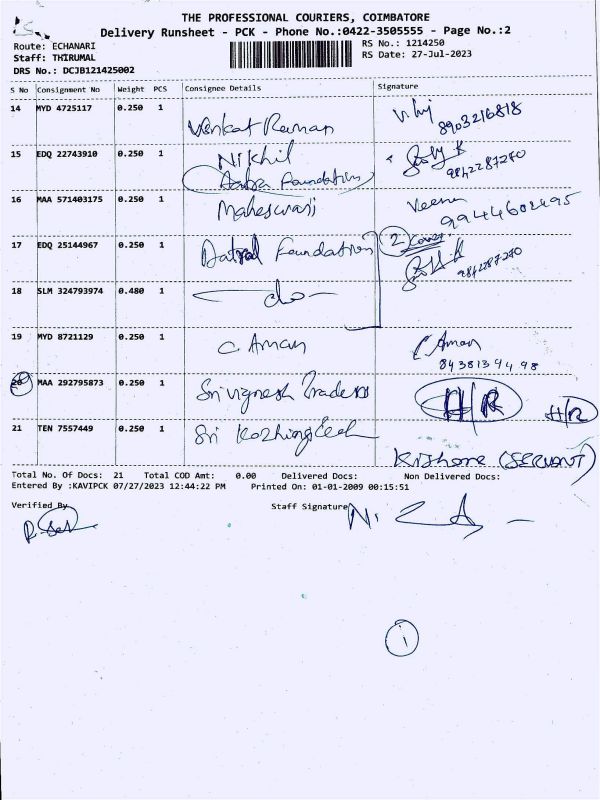 THE PROFESSIONAL COURIERS, COIMBATORE
Delivery Runsheet - PCK - Phone No.:0422-3505555 - Page No.:2
Route: ECHANARI
RS No.: 1214250
Staff: THIRUMAL
RS Date: 27-Jul-2023
DRS No.: DCJB121425002
S No Consignment No Weight PCS Consignee Details Signature
14 MYD 4725117 0.250 1 Venkat Raman 8903216818
15 EDQ 22743910 0.250 1 Nikhil
Foundation 9842287270
16 MAA 571403175 0.250 1 Maheswari Veena
9944602495
17 EDQ 25144967 0.250 1 Foundation 2 Cover
9842287270
18 SLM 324793974 0.480 1 — do —
19 MYD 8721129 0.250 1 C Aman C Aman
8438139498
20 MAA 292795873 0.250 1 Sri vignesh Traders H/R H/R
21 TEN 7557449 0.250 1 Sri
Kishore (SERVANT)
Total No. Of Docs: 21 Total COD Amt: 0.00 Delivered Docs: Non Delivered Docs:
Entered By :KAVIPCK 07/27/2023 12:44:22 PM Printed On: 01-01-2009 00:15:51
Verified By
Staff Signature
1